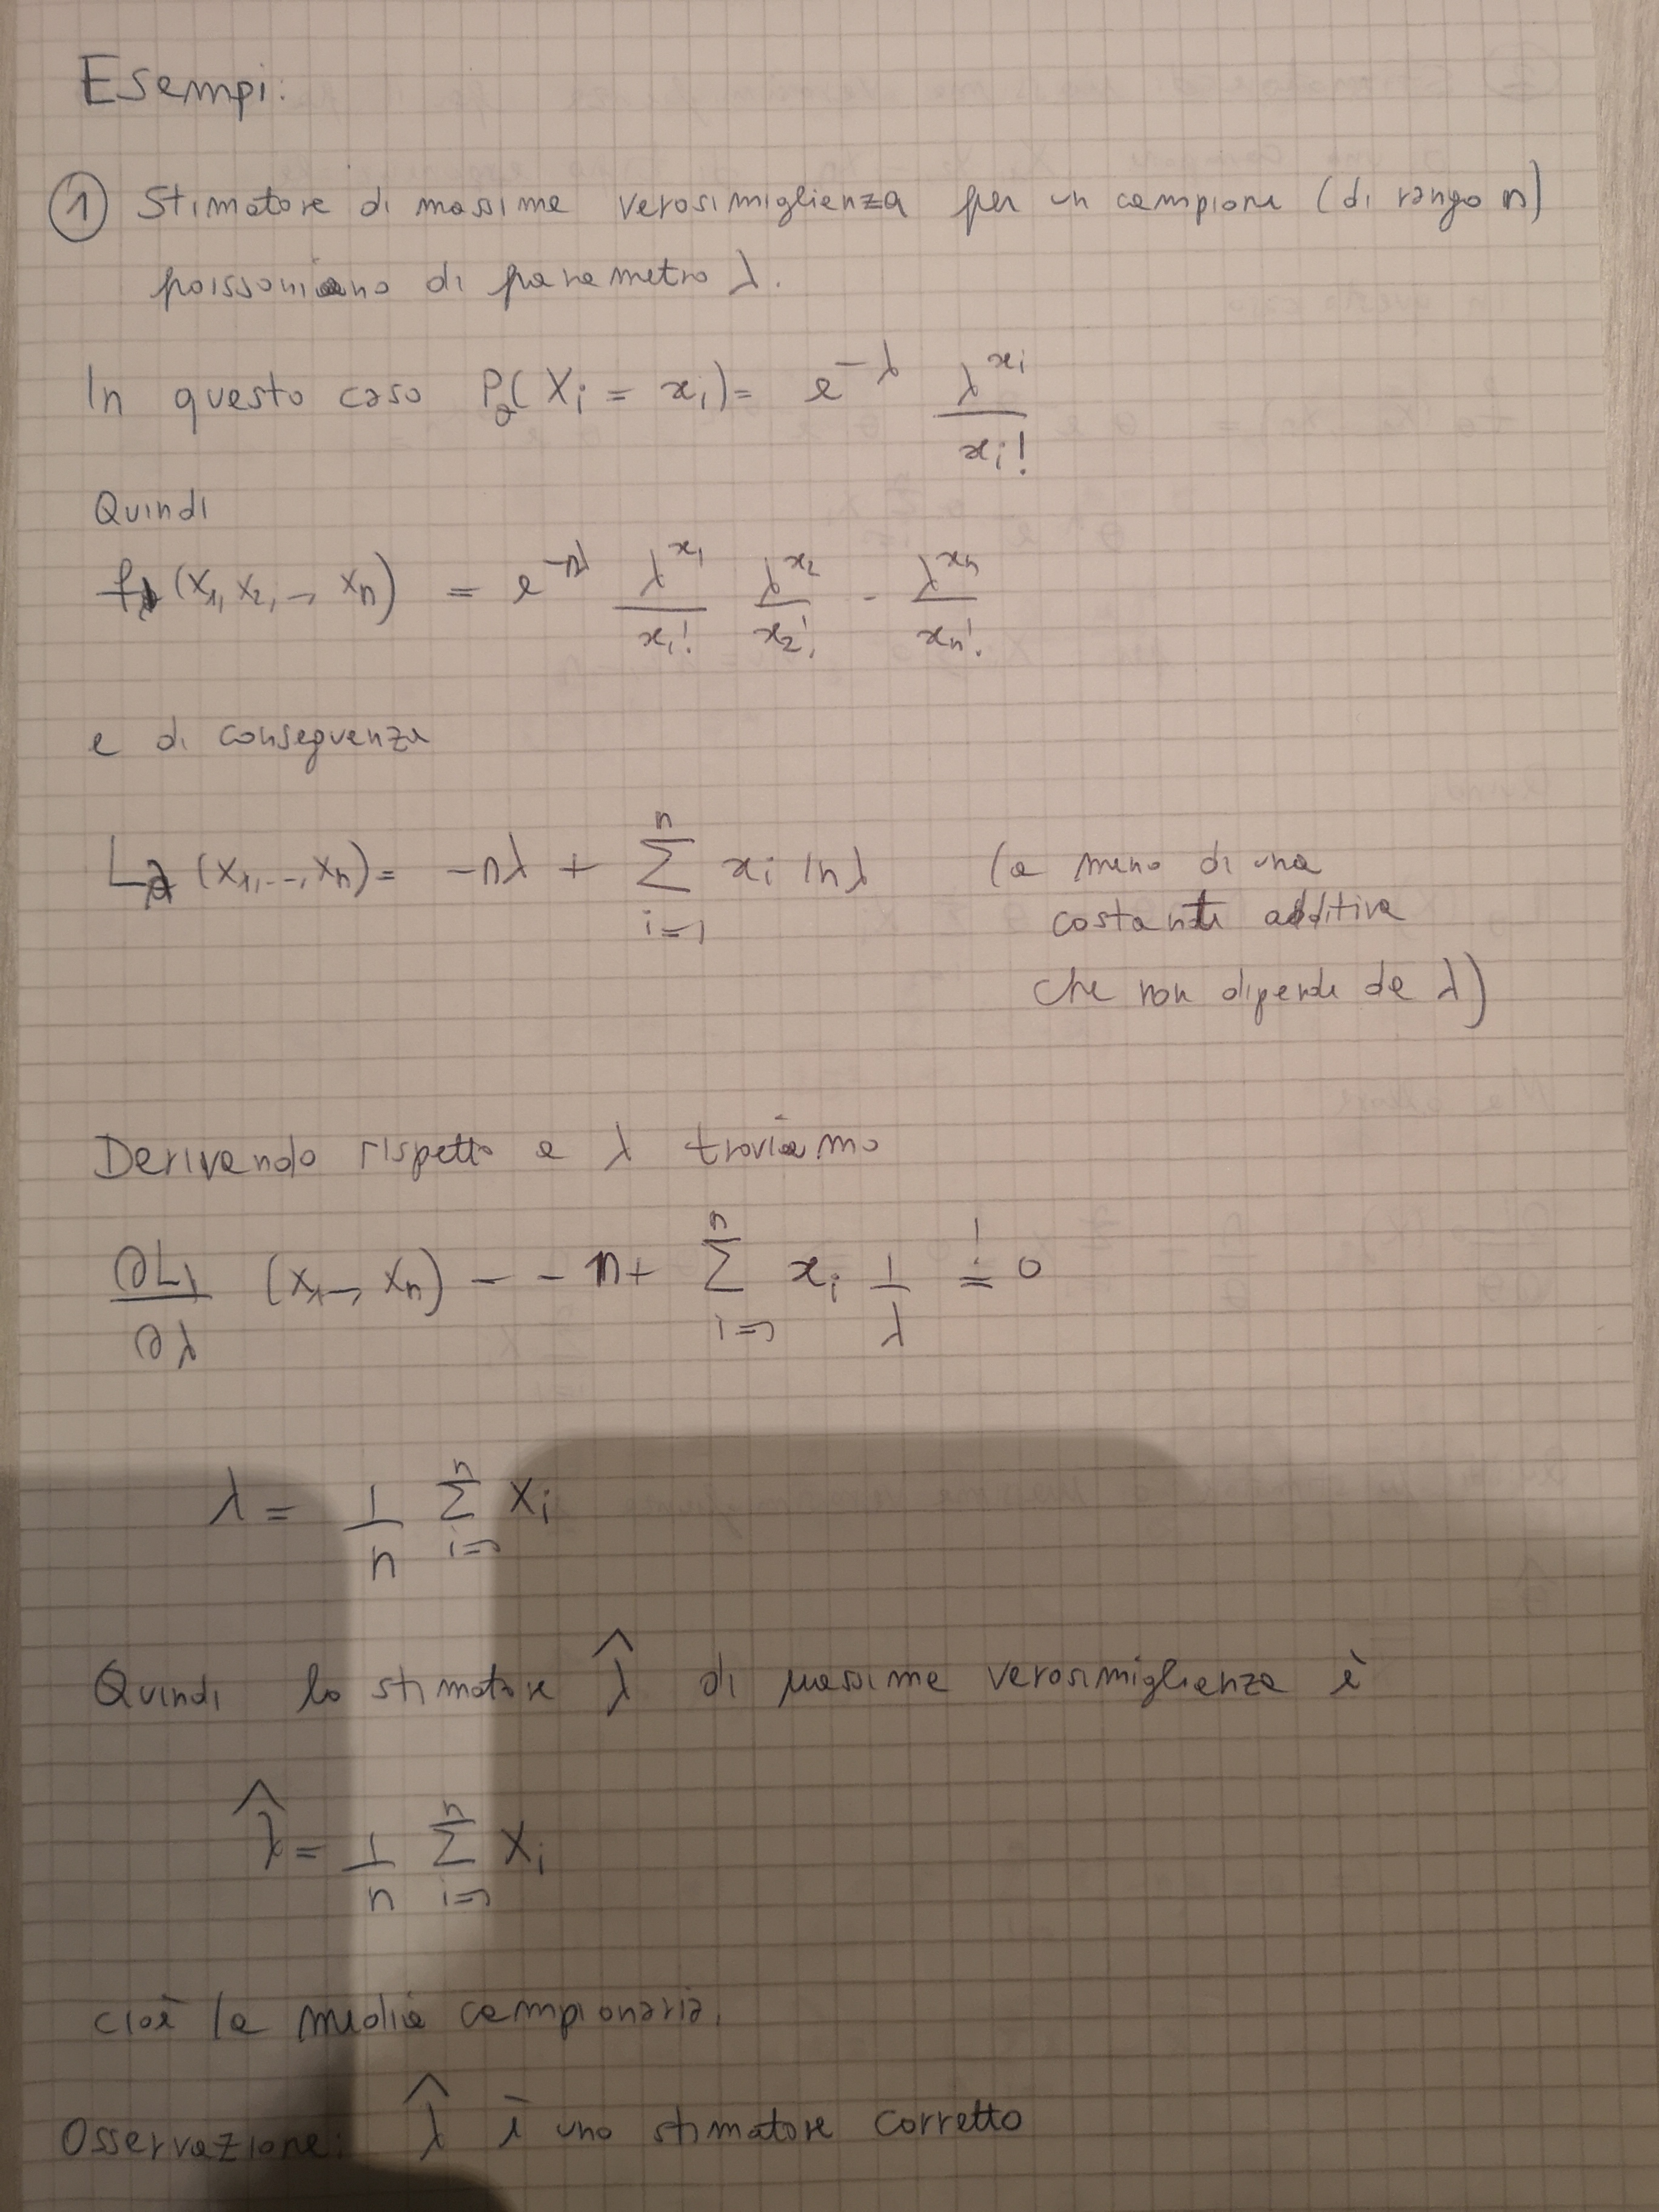 Esempi:
① Stimatore di massima verosimiglianza per un campione (di rango n)
poissoniano di parametro λ.
In questo caso P_λ(X_i = x_i) = e^{-λ} λ^{x_i} / x_i!
Quindi
f_λ (x_1, x_2, .., x_n) = e^{-nλ} λ^{x_1}/x_1! λ^{x_2}/x_2! - λ^{x_n}/x_n!
e di conseguenza
L_λ (x_1, .., x_n) = -nλ + Σ_{i=1}^{n} x_i ln λ (a meno di una
costante additiva
che non dipende da λ)
Derivando rispetto a λ troviamo
∂L_λ/∂λ (x_1, .., x_n) = - n + Σ_{i=1}^{n} x_i 1/λ =! 0
λ = 1/n Σ_{i=1}^{n} x_i
Quindi lo stimatore λ̂ di massima verosimiglianza è
λ̂ = 1/n Σ_{i=1}^{n} X_i
cioè la media campionaria.
Osservazione: λ̂ è uno stimatore corretto